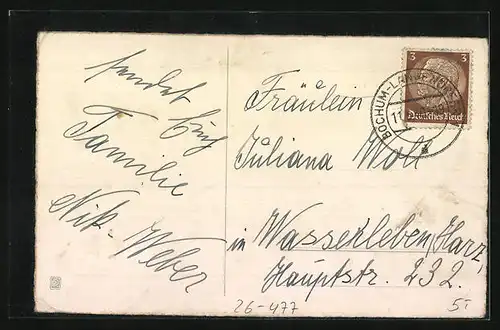 sendet Euch
Familie
Nik. Weber
Fräulein
Juliana Wolt
in Wasserleben/Harz
Hauptstr. 232.
3 3
Deutsches Reich
BOCHUM-LANGENDREER
11
a
26-477
5.-